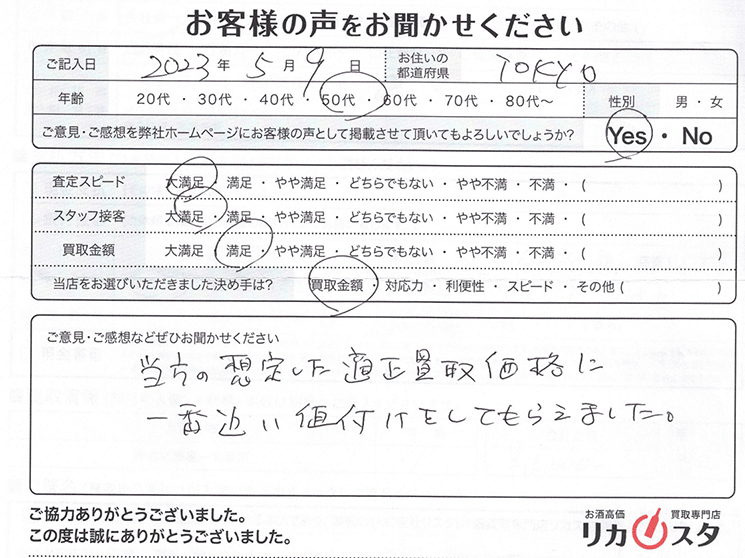 お客様の声をお聞かせください
ご記入日 2023年 5月 9日 お住いの都道府県 TOKYO
年齢 20代・30代・40代・50代・60代・70代・80代〜 性別 男・女
ご意見・ご感想を弊社ホームページにお客様の声として掲載させて頂いてもよろしいでしょうか? Yes・No
査定スピード 大満足・満足・やや満足・どちらでもない・やや不満・不満・( )
スタッフ接客 大満足・満足・やや満足・どちらでもない・やや不満・不満・( )
買取金額 大満足・満足・やや満足・どちらでもない・やや不満・不満・( )
当店をお選びいただきました決め手は? 買取金額・対応力・利便性・スピード・その他( )
ご意見・ご感想などぜひお聞かせください
当方の想定した適正買取価格に
一番近い値付けをしてもらえました。
ご協力ありがとうございました。
この度は誠にありがとうございました。
お酒高価 買取専門店
リカスタ